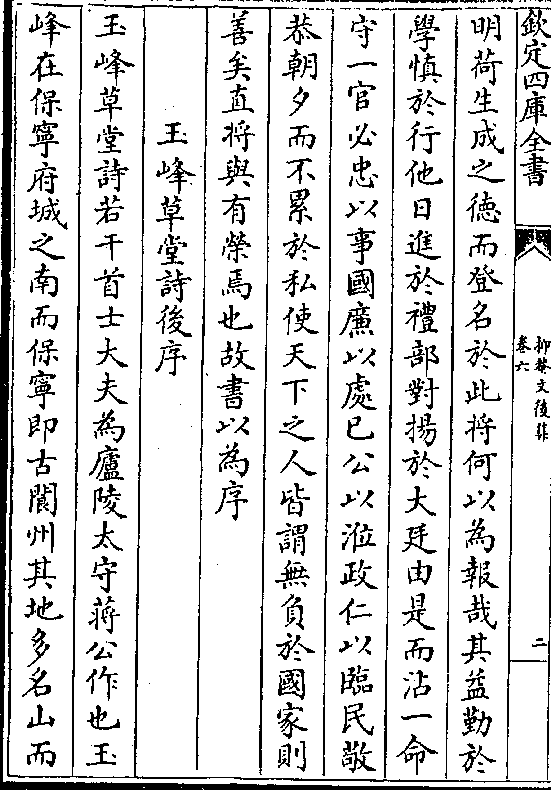 欽定四庫全書
抑菴文後集
卷六
二
明荷生成之德而登名於此将何以為報哉其益勤於
學慎於行他日進於禮部對揚於大廷由是而沾一命
守一官必忠以事國廉以處已公以涖政仁以臨民敬
恭朝夕而不累於私使天下之人皆謂無負於國家則
善矣直将與有榮焉也故書以為序
玉峰草堂詩後序
玉峰草堂詩若干首士大夫為廬陵太守蔣公作也玉
峰在保寧府城之南而保寧即古閬州其地多名山而